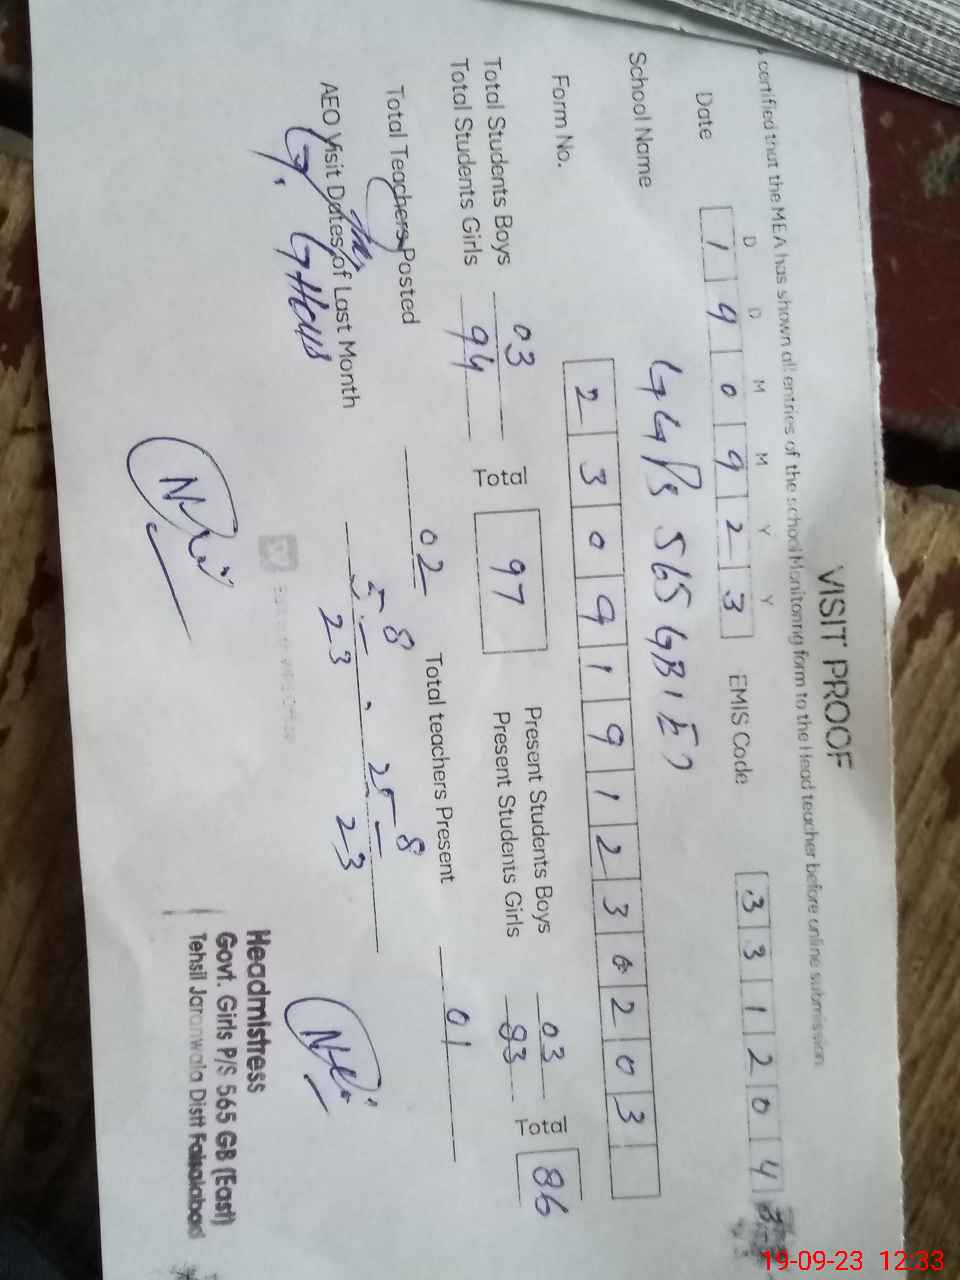 VISIT PROOF
certified that the MEA has shown all entries of the school Monitoring form to the Head teacher before online submission
D D M M Y Y
Date 1 9 0 9 2 3 EMIS Code 3 3 1 2 0 4
School Name GGPS 565 GB (E)
Form No. 2 3 0 9 1 9 1 2 3 0 2 0 3
Total Students Boys 03 Total 97 Present Students Boys 03 Total 86
Total Students Girls 94 Present Students Girls 83
Total Teachers Posted 02 Total teachers Present 01
AEO Visit Dates of Last Month 5-8 23, 25-8 23
Headmistress
Govt. Girls P/S 565 GB (East)
Tehsil Jaranwala Distt Faisalabad
19-09-23 12:33